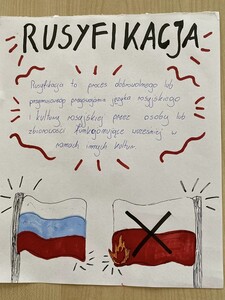 RUSYFIKACJA
Rusyfikacja to proces dobrowolnego lub
przymusowego przyjmowania języka rosyjskiego
i kultury rosyjskiej przez osoby lub
zbiorowości funkcjonujące wcześniej w
ramach innych kultur.